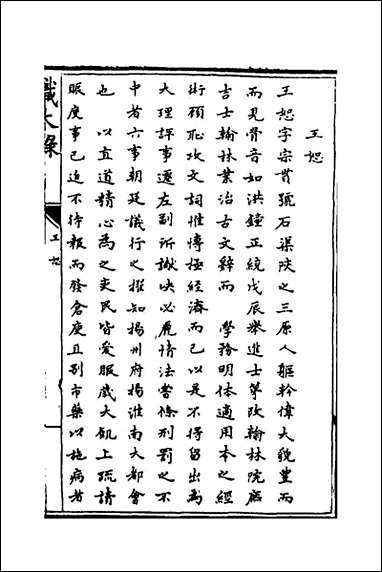 王恕
王恕字宗貫號石渠陝之三原人軀幹偉大貌豐而
而見骨音如洪鐘正統戊辰舉進士第改翰林院庶
吉士翰林業治古文辭而 學務明体適用本之經
術顧恥攻文詞惟博極經濟而已以是不得留出為
大理評事遷左副所讞决必麗情法嘗條刑罰之不
中者六事朝廷議行之擢知揚州府揚淮南大都會
也 以直道精心為之吏民皆愛服歲大飢上疏請
賑度事已迫不待報而發倉庾且剖市藥以施病者
識大錄
王恕